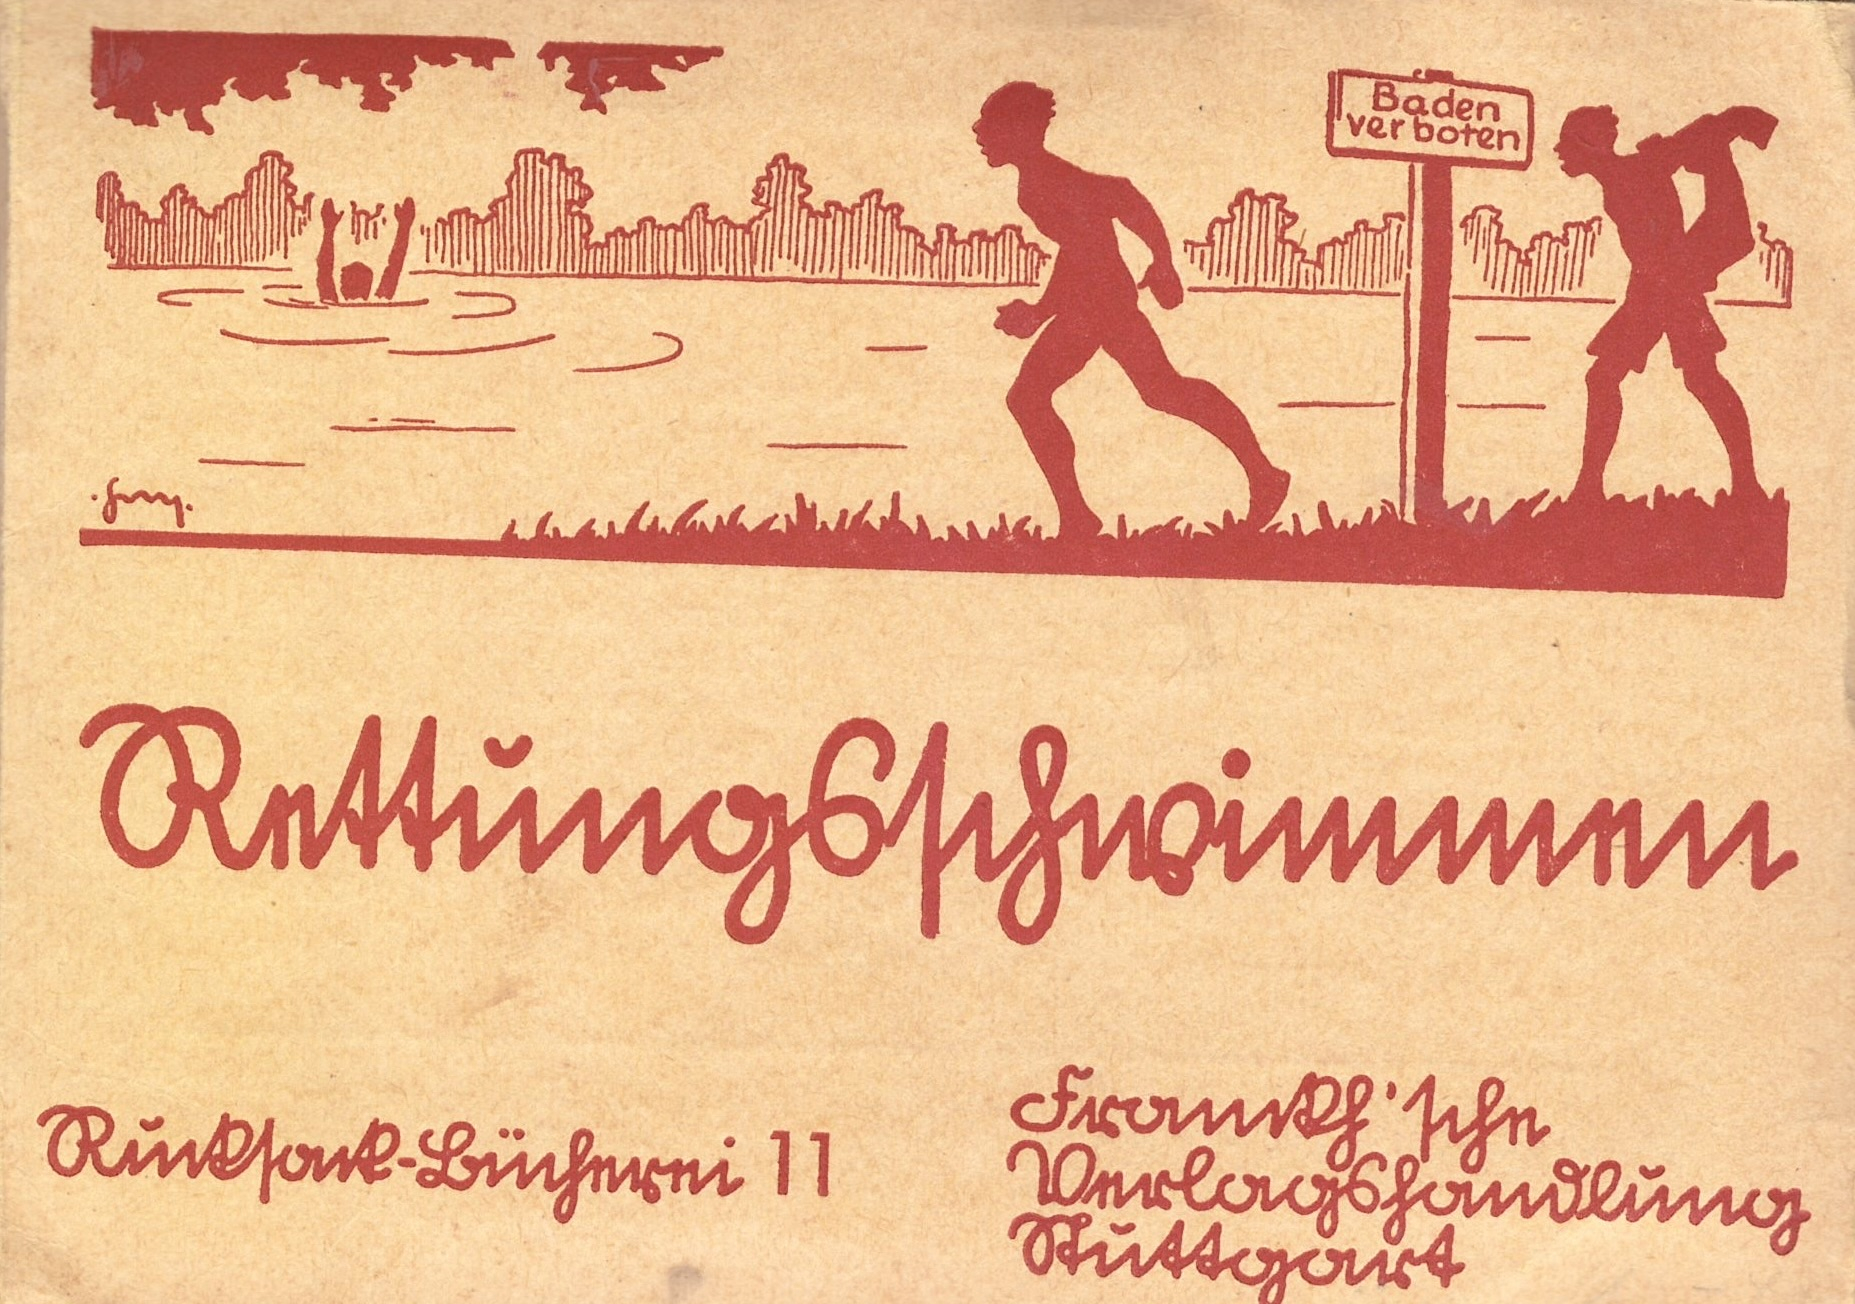 Baden
verboten
Rettungsschwimmen
Rucksack-Bücherei 11
Franckh'sche
Verlagshandlung
Stuttgart